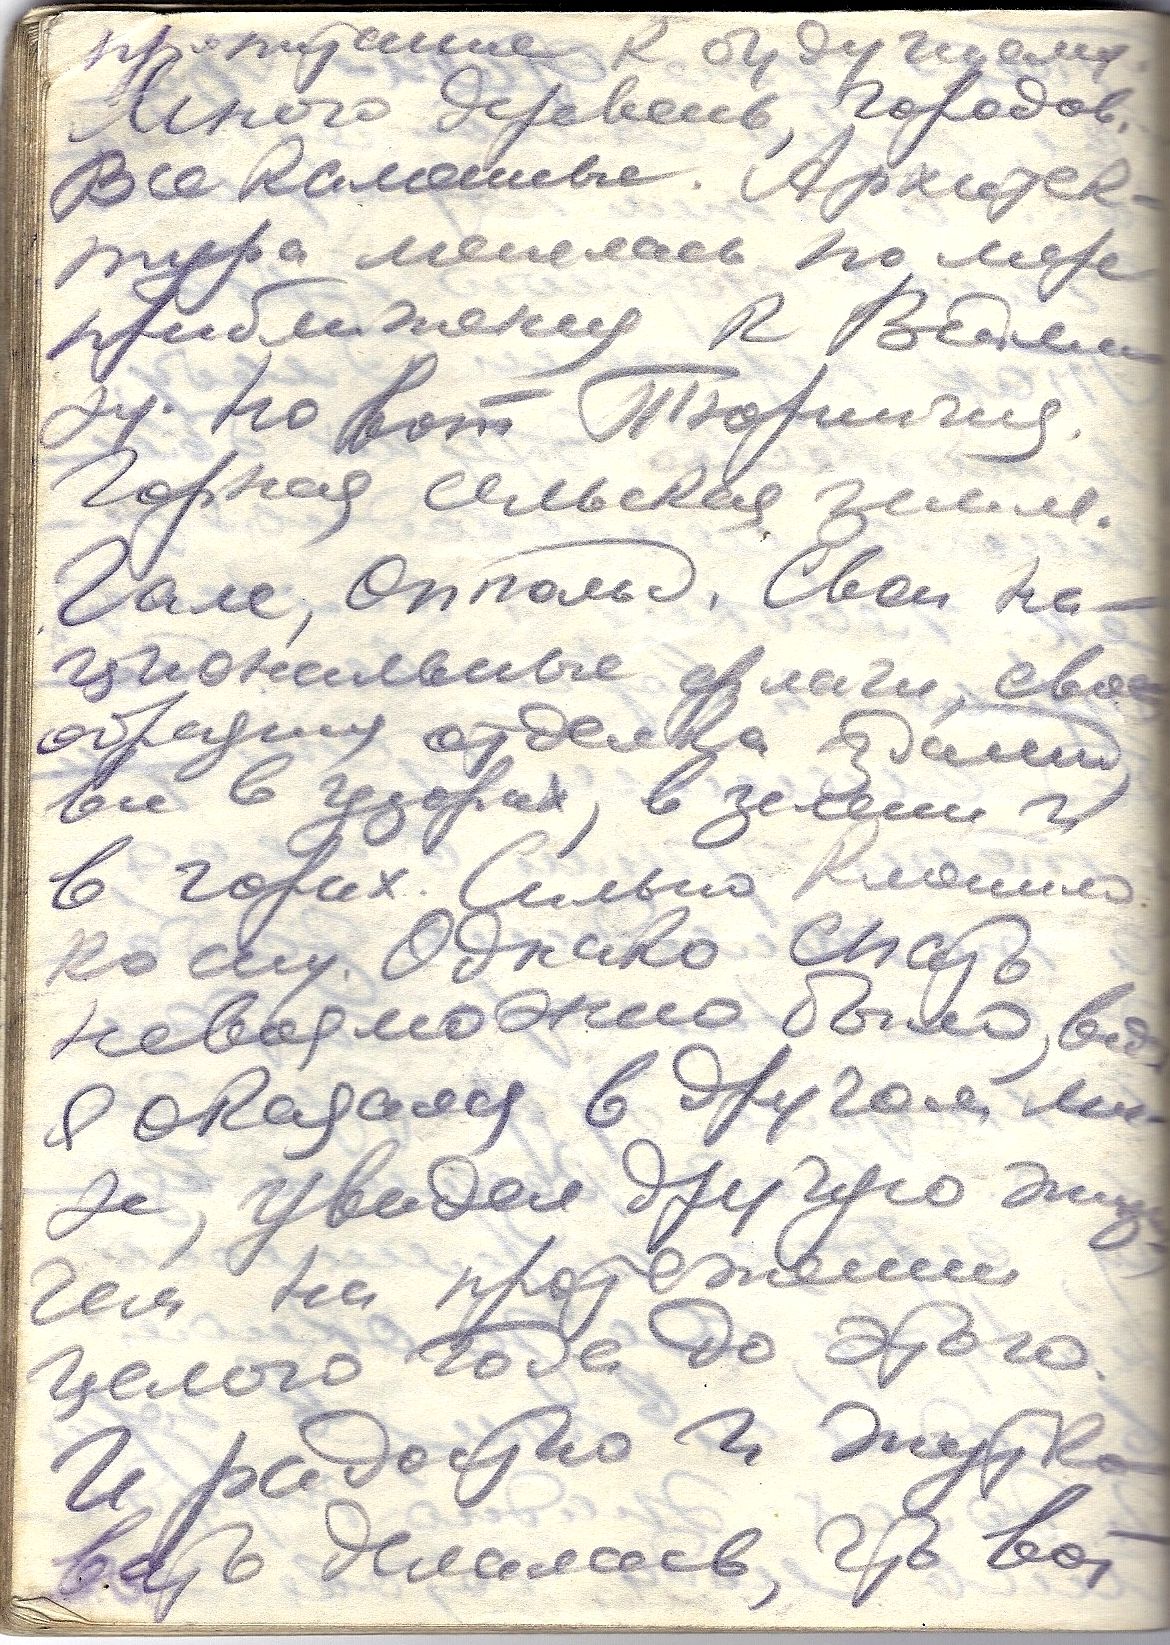 к будущему.
Много деревень, городов.
Все каменные. Архитек-
тура менялась по мере
приближения к
зу. Но вот Тюрингия.
Горная сельская земля.
Гале, Свои на-
циональные флаги, свое
образная отделка зданий,
вся в узорах, в зелени и
в горах. Сильно клонило
ко сну. Однако спать
невозможно было, ведь
я оказался в другом ми-
ре, увидел другую жизнь
чем на протяжении
целого года до этого.
И радостно и жутко-
вать делалась, что вот